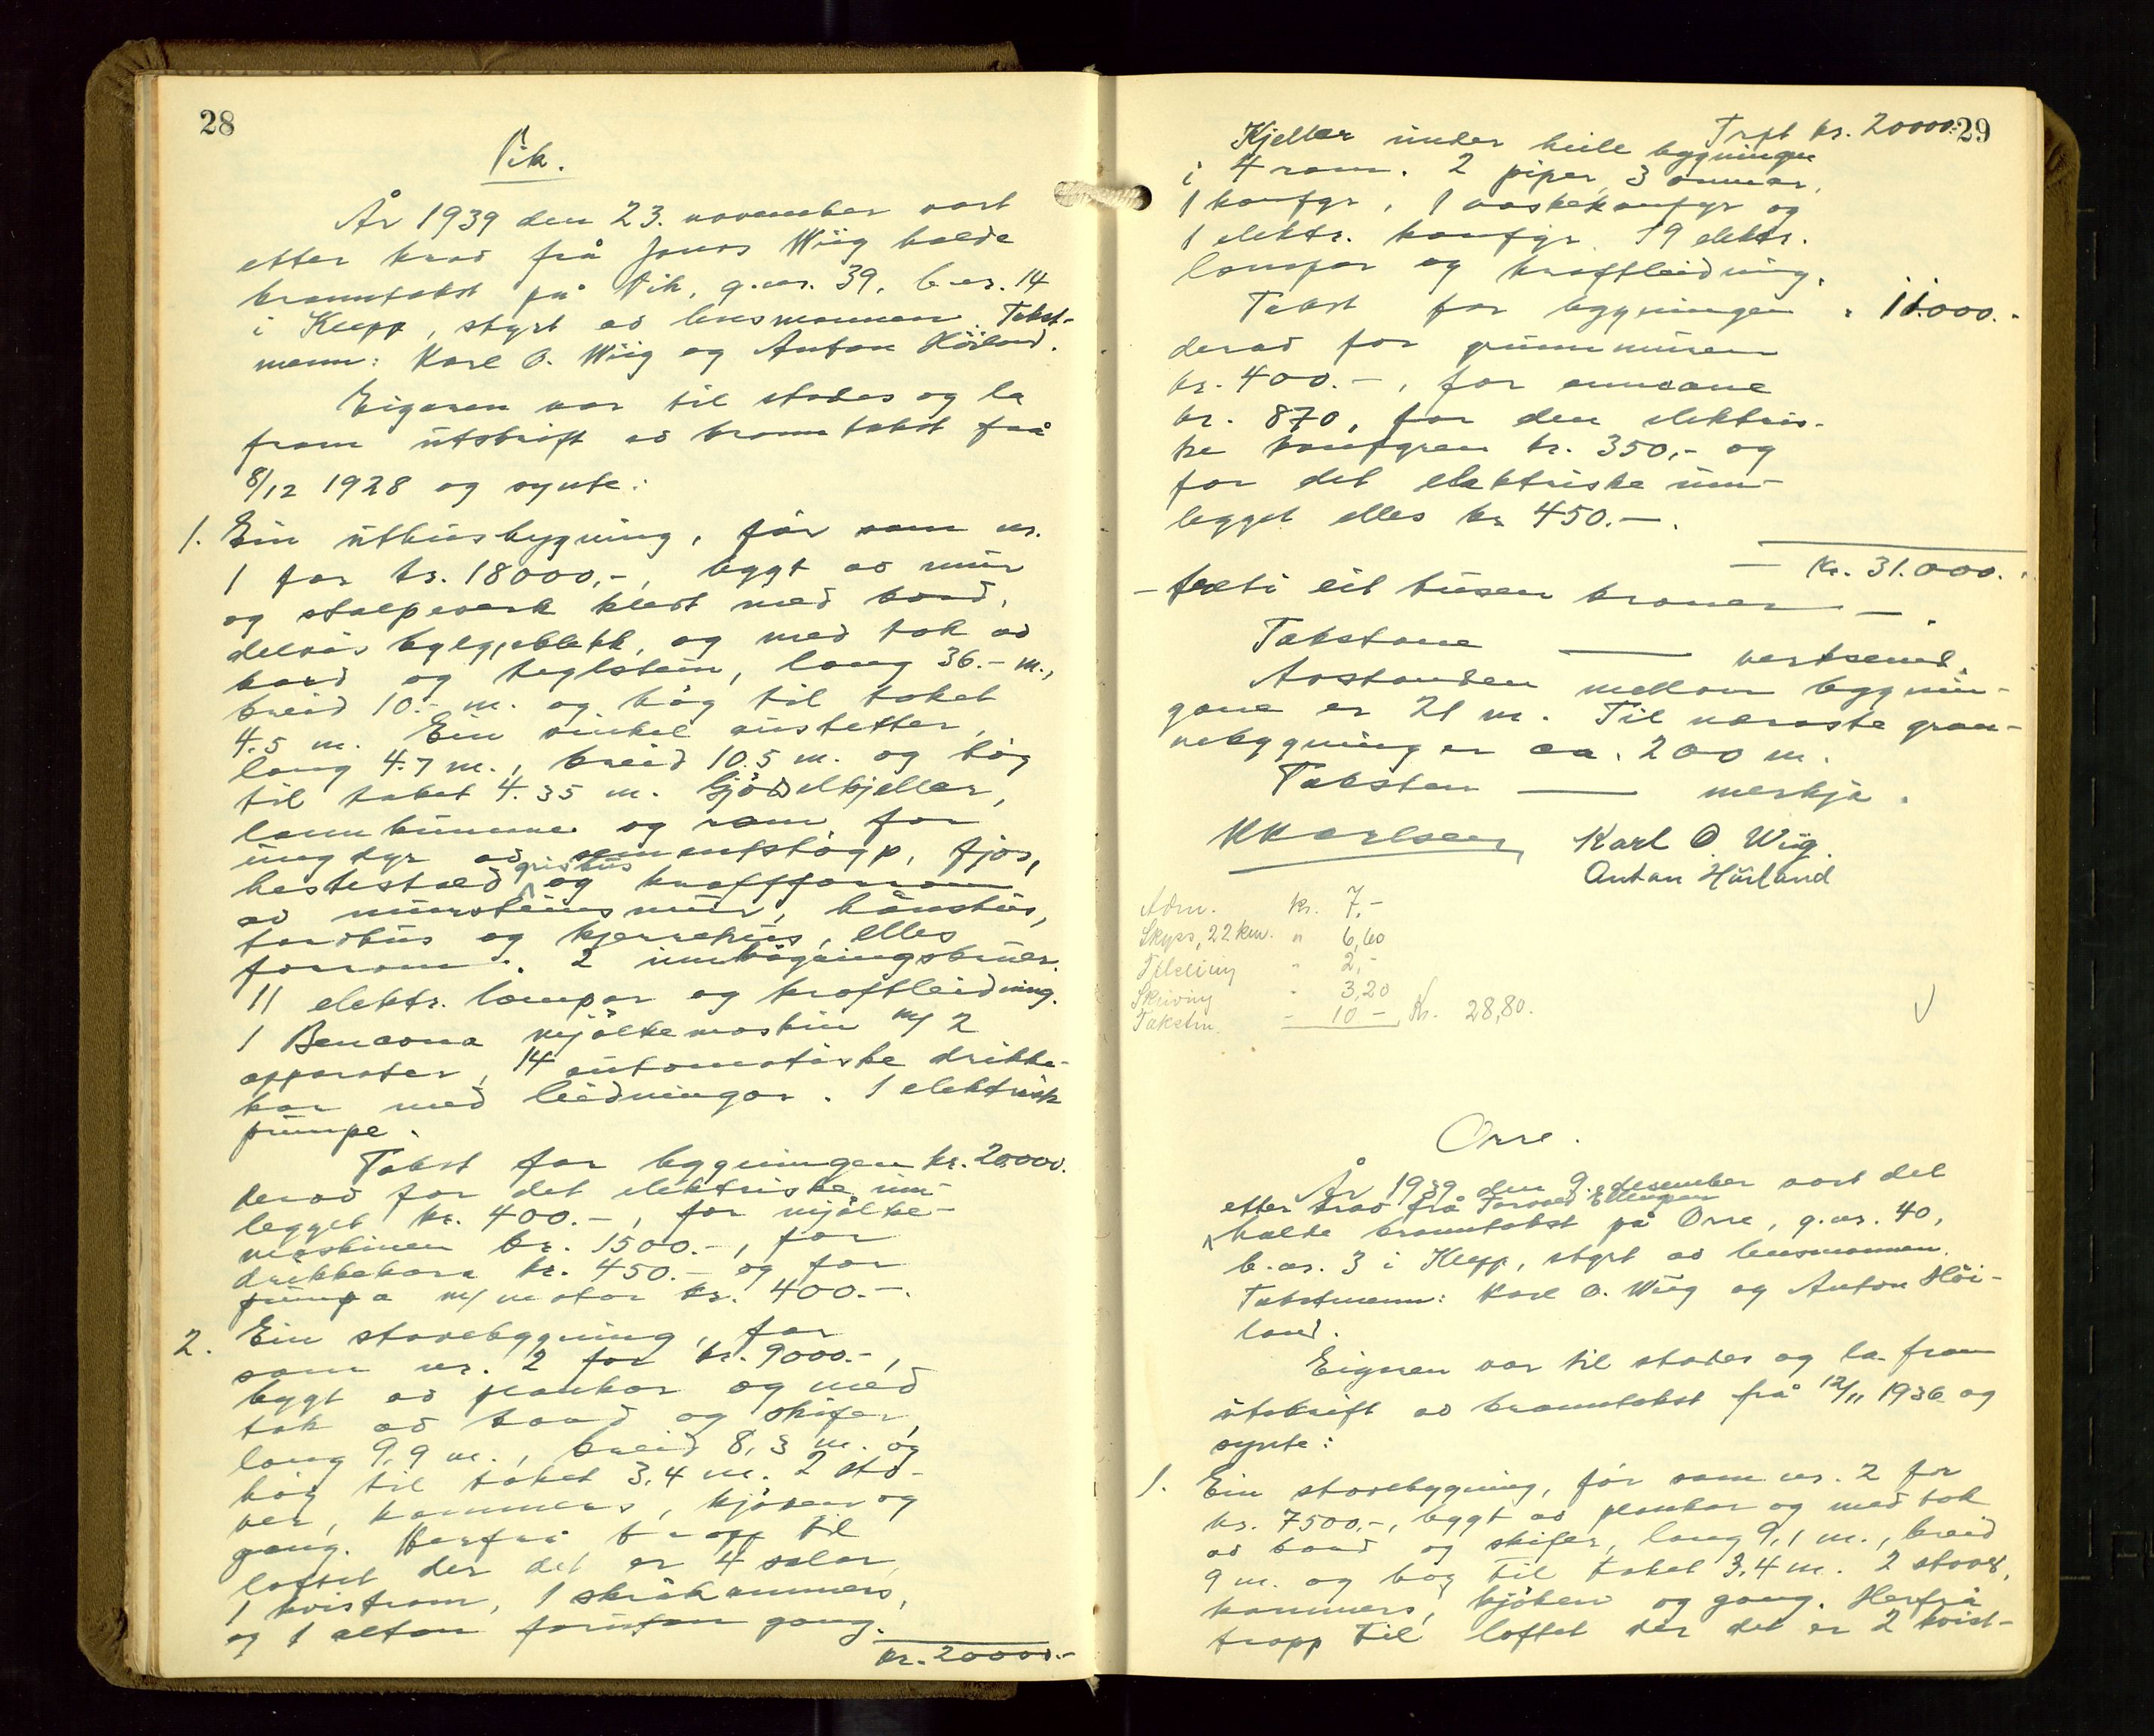 28
Vik.
År 1939 den 23. november vart
etter krav frå Jonas Wiig halde
branntakst på Vik, g.nr. 39, b.nr. 14
i Klepp, styrt av lensmannen. Takst-
menn: Karl O. Wiig og Anton Höiland.
Eigaren var til stades og la
fram utskrift av branntakst frå
8/12 1928 og synte:
1. Ein uthusbygning, før som nr.
1 for kr. 18000,-, bygt av mur
og stolpeverk kledt med bord,
delvis bylgjeblekk, og med tak av
bord og teglstein, lang 36.- m.,
breid 10.- m. og høg til taket
4.5 m. Ein vinkel austetter,
lang 4.7 m., breid 10.5 m. og høg
til taket 4.35 m. Gjödselkjellar,
landkumme og rom for
ungdyr av sementstøyp, fjos,
hestestald grishus og kraftforrom
av mursteinsmur, hönsehus,
torvhus og kjerrehus, elles
forrom. 2 innkøyringsbruer.
11 elektr. lampor og kraftleidning.
1 Benzona mjölkemaskin m/ 2
apparater, 14 automatiske drikke-
kar med leidningar. 1 elektrisk
pumpe.
Takst for bygningen kr. 20.000.
derav for det elektriske inn-
legget kr. 400.-, for mjölke-
maskinen kr. 1500.-, for
drikkekara kr. 450.- og for
pumpa m/ motor kr. 400.-.
2. Ein stovebygning, før
som nr. 2 for kr. 9000.-,
bygt av plankar og med
tak av bord og skifer,
lang 9,9 m., breid 8,3 m. og
høg til taket 3,4 m. 2 sto-
ver, kammers, kjöken og
gang. Herfrå trapp til
loftet der det er 4 salar,
1 kvistrom, 1 skråkammers,
og 1 altan forutan gang.
kr. 20000.-
29
Trpt kr. 20000.-
Kjellar under heile bygningen
i 4 rom. 2 piper, 3 omnar,
1 komfyr, 1 vaskekomfyr og
1 elektr. komfyr. 19 elektr.
lampor og kraftleidning.
Takst for bygningen " 11.000.-
derav for grunnmuren
kr. 400.-, for omnane
kr. 870, for den elektris-
ke komfyren kr. 350,- og
for det elektriske inn-
legget elles kr 450.-.
Kr. 31.000.-
- tretti eit tusen kroner -
Takstane ——— vertseind.
Avstanden mellom bygnin-
gane er 21 m. Til næraste gran-
nebygning er ca. 200 m.
Taksten ——— merkja.
KKarlsen Karl O. Wiig.
Anton Höiland
Adm. kr. 7,-
Skyss, 22 km. " 6,60
Tilseiing " 2,-
Skriving " 3,20
Takstm. - 10 - Kr. 28,80.
Orre.
År 1939 den 9. desember vart det
etter krav frå Torvald Ellingsen
halde branntakst på Orre, g.nr. 40,
b.nr. 3 i Klepp, styrt av lensmannen.
Takstmenn: Karl O. Wiig og Anton Höi-
land.
Eigaren var til stades og la fram
utskrift av branntakst frå 12/11 1936 og
synte:
1. Ein stovebygning, før som nr. 2 for
kr. 7500,-, bygt av plankar og med tak
av bord og skifer, lang 9,1 m., breid
9 m. og høg til taket 3,4 m. 2 stover,
kammers, kjöken og gang. Herfrå
trapp til loftet der det er 2 kvist-